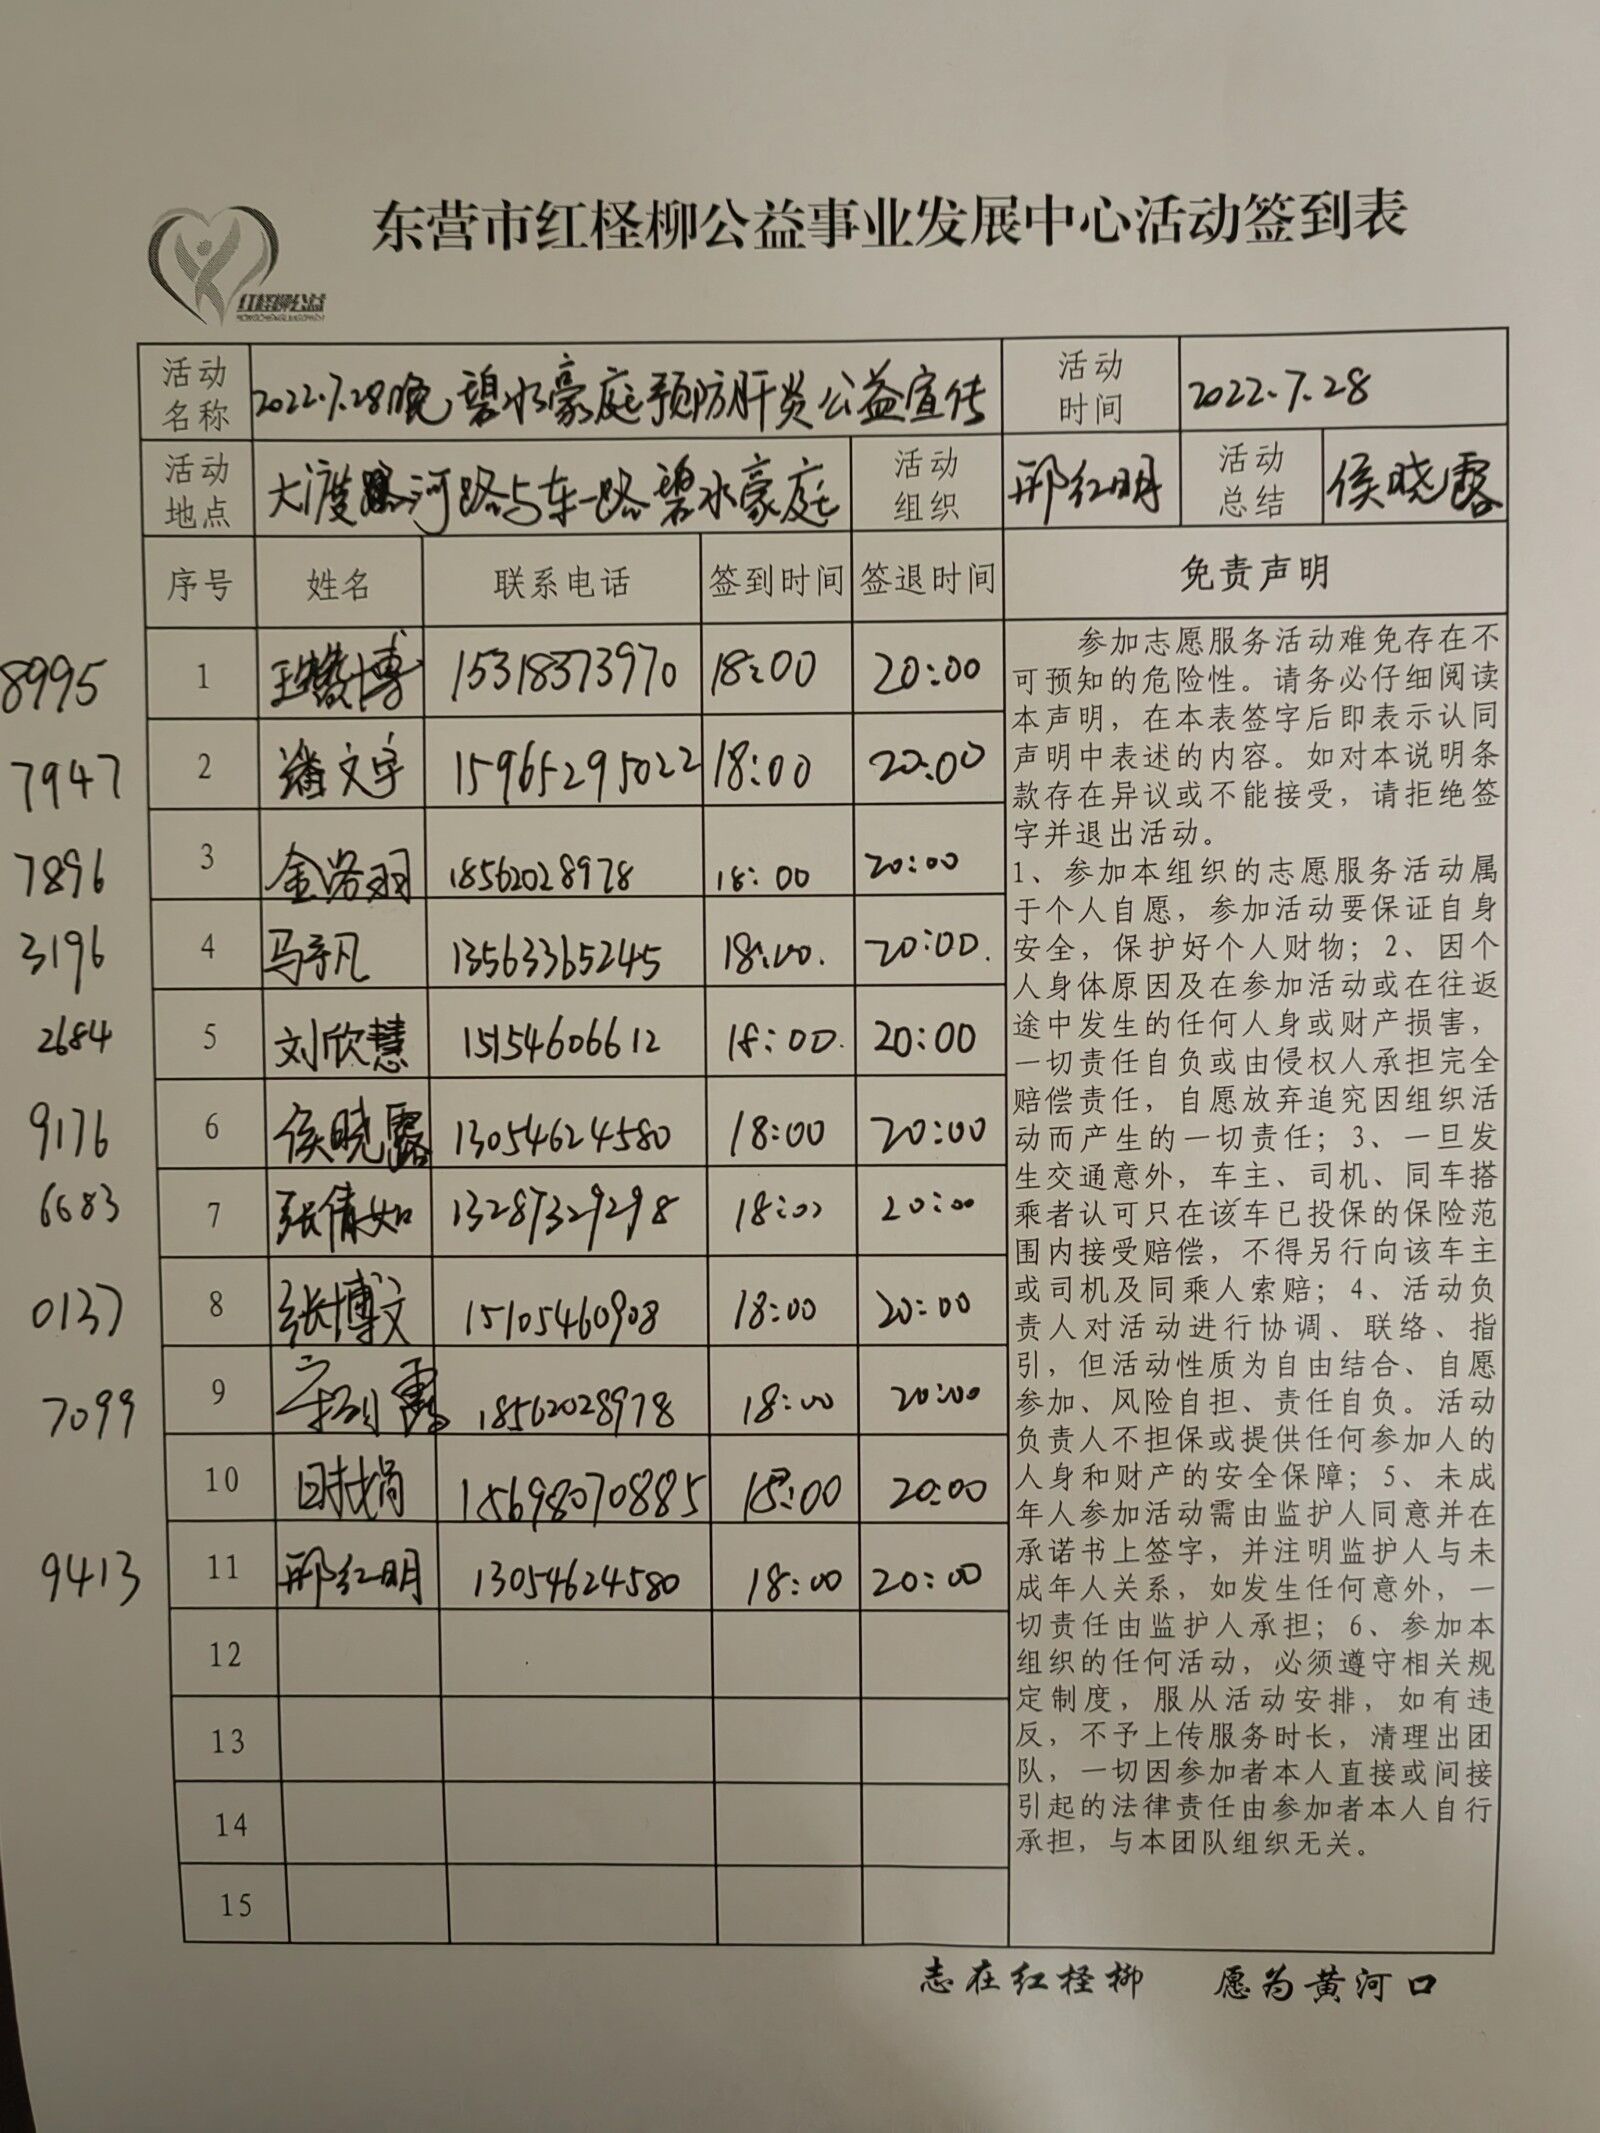 东营市红柽柳公益事业发展中心活动签到表
红柽柳公益
活动名称 2022.7.28晚碧水豪庭预防肝炎公益宣传 活动时间 2022.7.28
活动地点 大渡河路与东一路碧水豪庭 活动组织 邢红明 活动总结 侯晓露
序号 姓名 联系电话 签到时间 签退时间 免责声明
8995 1 博 15318373970 18:00 20:00
7947 2 潘文宇 15965295022 18:00 20:00
7896 3 金洛羽 18562028978 18:00 20:00
3196 4 马子凡 13563365245 18:00. 20:00.
2684 5 刘欣慧 15154606612 18:00. 20:00
9176 6 侯晓露 13054624580 18:00 20:00
6683 7 张倩如 13287329298 18:00 20:00
0137 8 张博文 15105460908 18:00 20:00
7099 9 18562028978 18:00 20:00
10 15698070885 18:00 20:00
9413 11 邢红明 13054624580 18:00 20:00
12
13
14
15
参加志愿服务活动难免存在不
可预知的危险性。请务必仔细阅读
本声明，在本表签字后即表示认同
声明中表述的内容。如对本说明条
款存在异议或不能接受，请拒绝签
字并退出活动。
1、参加本组织的志愿服务活动属
于个人自愿，参加活动要保证自身
安全，保护好个人财物；2、因个
人身体原因及在参加活动或在往返
途中发生的任何人身或财产损害，
一切责任自负或由侵权人承担完全
赔偿责任，自愿放弃追究因组织活
动而产生的一切责任；3、一旦发
生交通意外，车主、司机、同车搭
乘者认可只在该车已投保的保险范
围内接受赔偿，不得另行向该车主
或司机及同乘人索赔；4、活动负
责人对活动进行协调、联络、指
引，但活动性质为自由结合、自愿
参加、风险自担、责任自负。活动
负责人不担保或提供任何参加人的
人身和财产的安全保障；5、未成
年人参加活动需由监护人同意并在
承诺书上签字，并注明监护人与未
成年人关系，如发生任何意外，一
切责任由监护人承担；6、参加本
组织的任何活动，必须遵守相关规
定制度，服从活动安排，如有违
反，不予上传服务时长，清理出团
队，一切因参加者本人直接或间接
引起的法律责任由参加者本人自行
承担，与本团队组织无关。
志在红柽柳 愿为黄河口